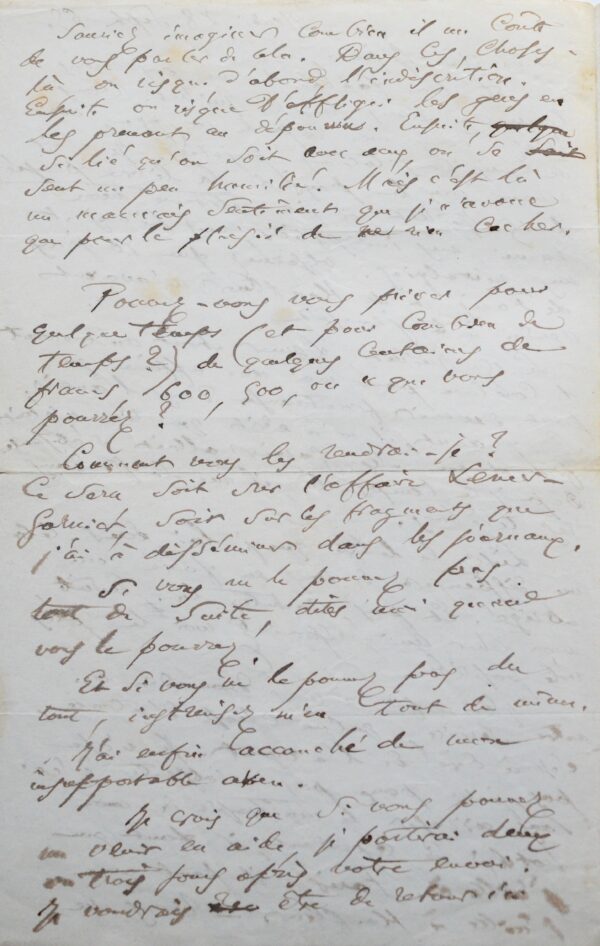 sauriez imaginer combien il me coûte
de vous parler de cela. Dans ces choses-
là on risque d'abord l'indiscrétion.
Ensuite on risque d'affliger les gens en
les prenant au dépourvu. Ensuite quelque
si lié qu'on soit avec eux, on se sait
sent un peu humilié. Mais c'est là
un mauvais sentiment que je n'avoue
que pour le plaisir de ne rien cacher.
Pouvez-vous vous priver pour
quelque temps (et pour combien de
temps?) de quelques centaines de
francs, 600, 500, ou ce que vous
pourrez?
Comment vous les rendrai-je?
Ce sera soit sur l'affaire Lemer-
Garnier, soit sur les fragments que
j'ai à disséminer dans les journaux.
Si vous ne le pouvez pas
tout de suite, dites-moi quand
vous le pourrez.
Et si vous ne le pouvez pas du
tout, instruisez m'en tout de même.
J'ai enfin accouché de mon
insupportable aveu.
Je crois que si vous pouvez
me venir en aide, je partirai deux
ou trois jours après votre envoi.
Je voudrais être de retour ici